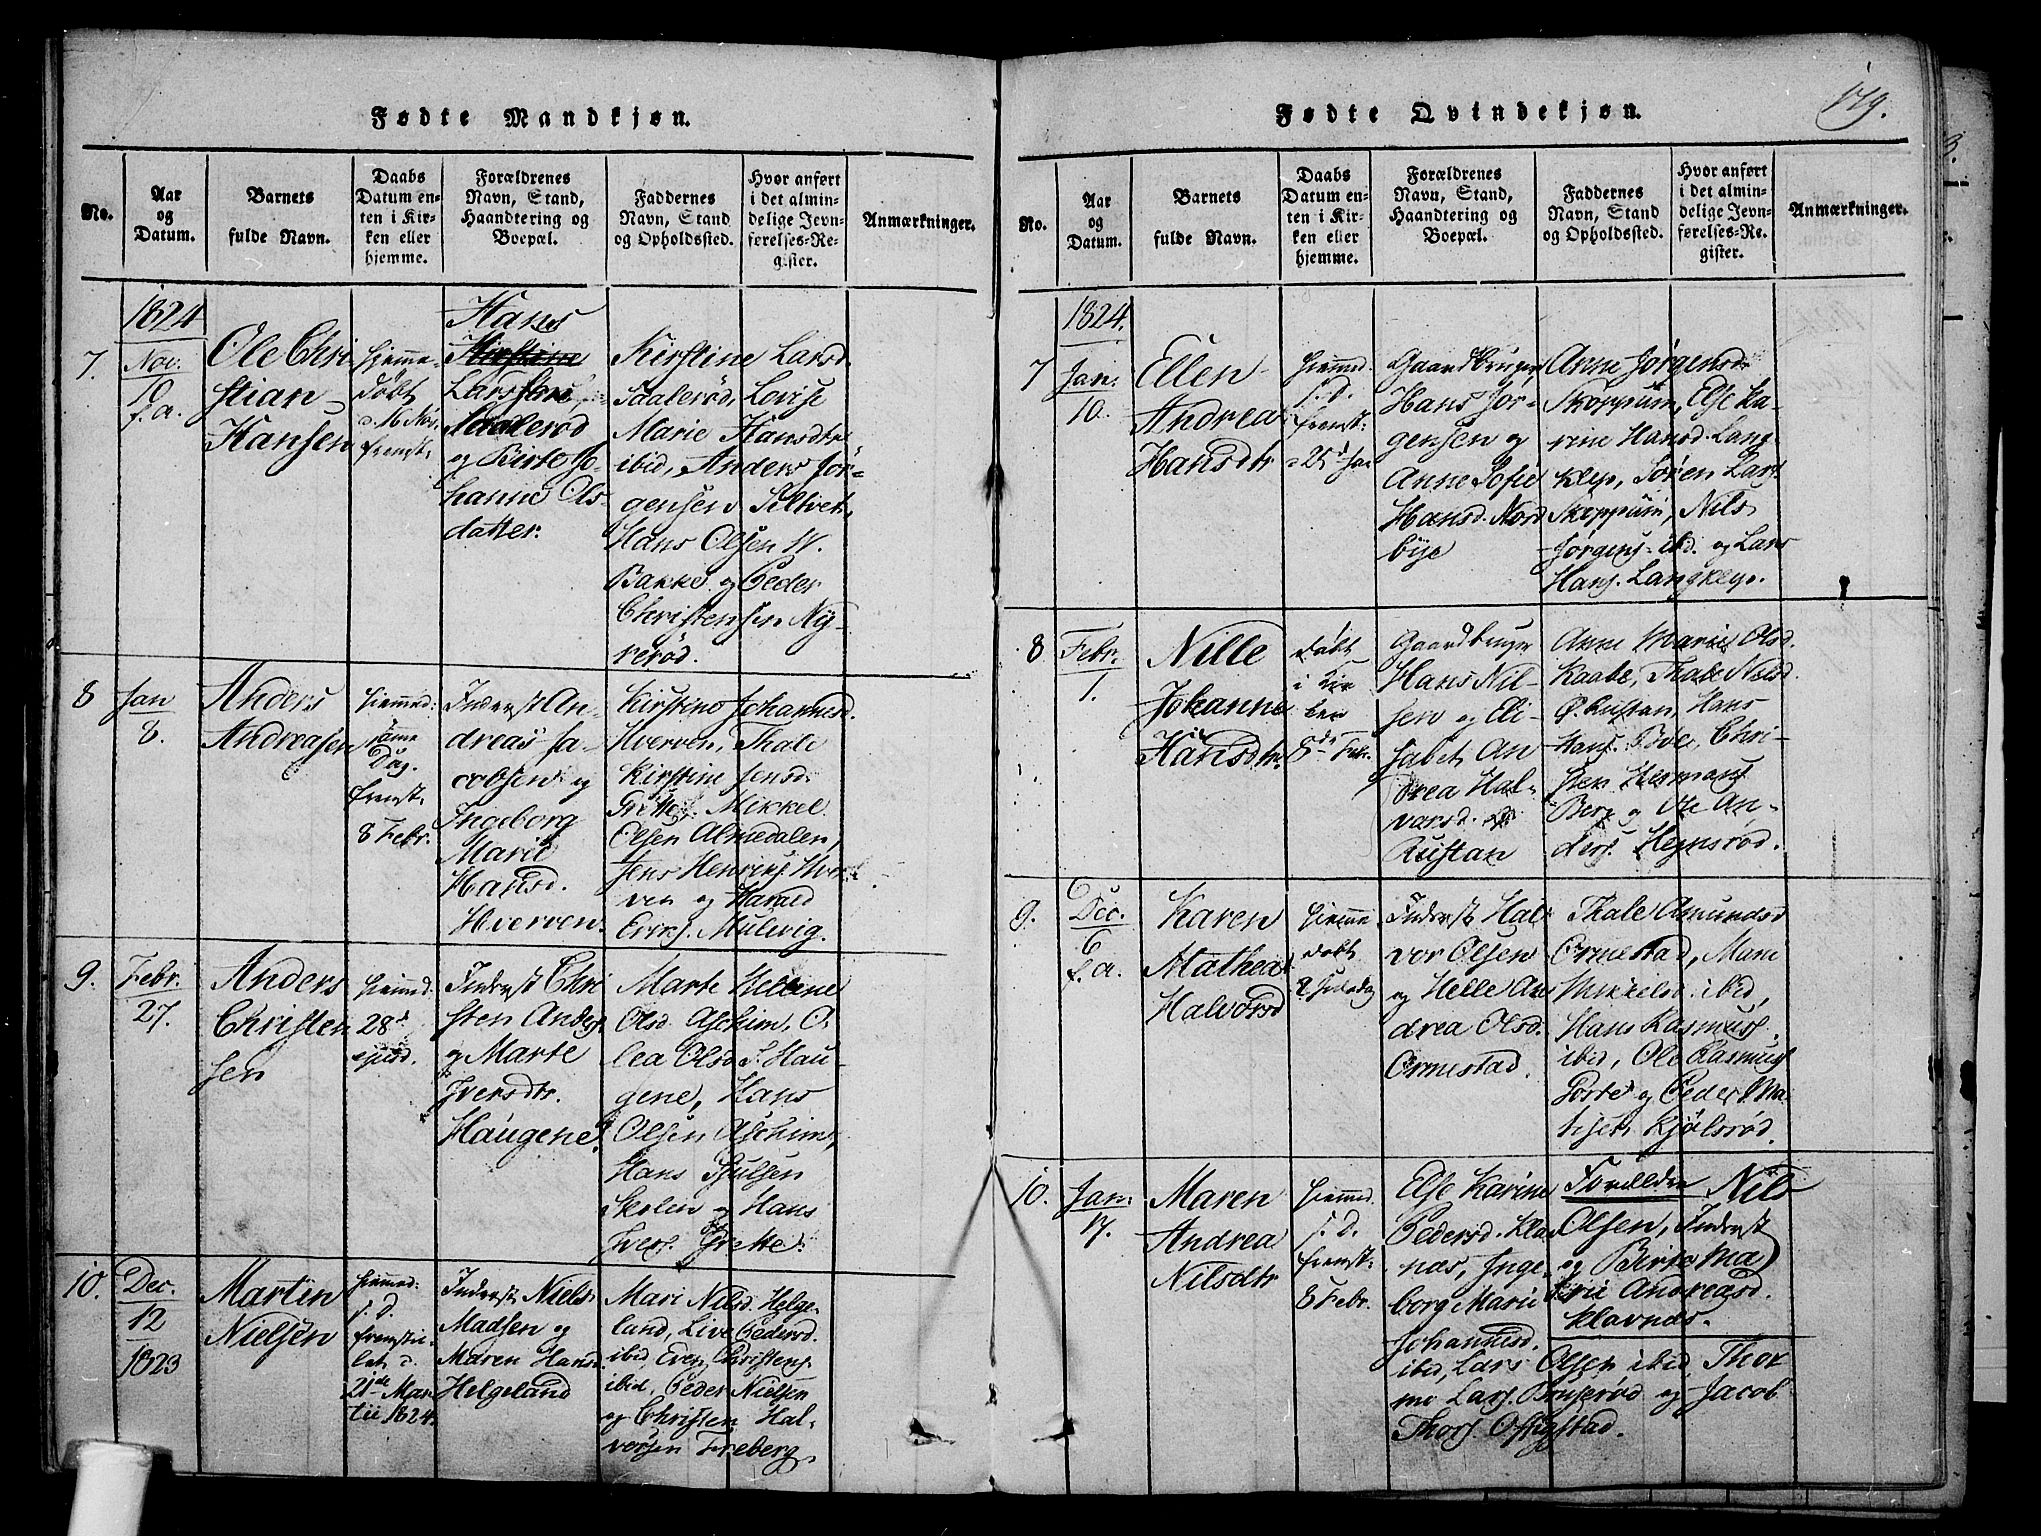 179.
Fødte Mandkjøn.
No.
Aar
og
Datum.
Barnets
fulde Navn.
Daabs
Datum en-
ten i Kir-
ken eller
hjemme.
Forældrenes
Navn, Stand,
Haandtering og
Boepæl.
Faddernes
Navn, Stand
og Opholdssted.
Hvor anført
i det almin-
delige Jevn-
førelses-Re-
gister.
Anmærkninger.
1824
7.
Nov.
10
f. a.
Ole Chri
stian
Hansen
hjemme-
døbt
fremst:
Hans
Kirstine
Larssen,
Saalerød
og Birte Jo-
hanne Ols-
datter.
Kirstine Larsd.
Saalerød, Lovise
Marie Hansdtr
ibid, Anders Jør-
gensen Siltvet,
Hans Olsen N.
Bakke og Peder
Christensen Ny-
rerød.
8
Jan
8.
Anders
Andreasen
hjemmed:
samme
Dag.
fremst:
8 Febr.
Inderst An-
dreas Ja-
cobsen og
Ingeborg
Marie
Hansd.
Hverven.
Kirstine Johannesd.
Hverven, Thale
Kirstine Jensd.
Grette, Mikkel
Olsen Almedalen,
Jens Henrics. Hver-
ven og Harald
Erics. Mulvig.
9.
Febr.
27.
Anders
Christen
sen
hjemmd.
28d
ejusd.
Inderst Chri
sten Anders.
og Marte
Iversdtr.
Haugene.
Marte Hellene
Olsd. Aschim, O
lea Olsd. S. Hau-
gene, Hans
Olsen Aschim,
Hans Poulsen
Skolen og Hans
Ivers. Grette.
10.
Dec.
12
1823
Martin
Nielsen
hjemmed:
s. D.
fremstil-
let d.
21de Mar-
tii 1824.
Inderst Niels
Madsen og
Maren Hansd.
Helgeland
Mari Nilsd. Helge-
land, Live Pedersd.
ibid, Even Christens.
ibid, Peder Nielsen
og Christen Hal-
vorsen Freberg.
Fødte Qvindekjøn.
No.
Aar
og
Datum.
Barnets
fulde Navn.
Daabs
Datum en-
ten i Kir-
ken eller
hjemme.
Forældrenes
Navn, Stand,
Haandtering og
Boepæl.
Faddernes
Navn, Stand
og Opholdssted.
Hvor anført
i det almin-
delige Jevn-
førelses-Re-
gister.
Anmærkninger.
1824.
7
Jan.
10.
Ellen
Andrea
Hansdtr
hjemmed
s. D.
fremst:
d 25d Jan
Gaardbruger
Hans Jør-
gensen og
Anne Sofie
Hansd. Nord
bye
Anne Jørgensd.
Skoppum, Else Ka-
rine Hansd. Lang-
klep, Søren Lars.
Skoppum, Nils
Jørgens. ibd. og Lars
Hans. Langklep.
8
Febr.
1.
Nille
Johanne
Hansdtr.
døbt
i Kir
ken
8de Febr.
Gaardbruger
Hans Nil-
sen og Eli-
sabet An
drea Hal-
varsd.
Rustan
Anne Marie Olsd.
Kaabe, Thale Nilsd.
Ø. Rustan, Hans
Hans. Bøe, Chri-
sten Hermans.
Berg og Ole An-
ders. Hemsrød.
9.
Dec.
6
f. a.
Karen
Mathea
Halvorsd
hjemme
døbt
2 Juledag
Inderst Hal-
vor Olsen
og Helle An
drea Olsd.
Ormestad.
Thale Amundsd
Ormestad, Maren
Mikkelsd. ibid,
Hans Rasmus.
ibid, Ole Rasmus.
Borre og Peder Ma-
tisen Kjølsrød.
10.
Jan.
17.
Maren
Andrea
Nilsdtr
hjemmed.
s. D.
fremst:
8 Febr.
Forældre Nils
Olsen, Inderst
og Birte Ma
rie Andreasd.
Klavnæs.
Else Karine
Pedersd. Klav
næs, Inge-
borg Marie
Johannesd.
ibid, Lars Olsen ibid, Thor
mo Lars. Bruserød og Jacob
Thors.